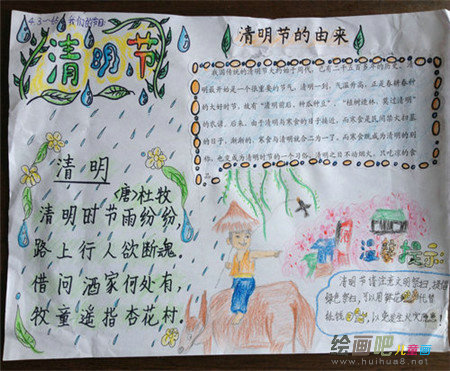 我们的节日
清明节
清明节的由来
我国传统的清明节大约始于周代，已有二千五百多年的历史。
明最开始是一个很重要的节气，清明一到，气温升高，正是春耕春种
的大好时节，故有“清明前后，种瓜种豆”、“植树造林，莫过清明”
的农谚。后来，由于清明与寒食的日子接近，而寒食是民间禁火扫墓
的日子，渐渐的，寒食与清明就合二为一了，而寒食既成为清明的别
称，也变成为清明时节的一个习俗，清明之日不动烟火，只吃凉的食
清明
(唐)杜牧
清明时节雨纷纷，
路上行人欲断魂。
借问酒家何处有，
牧童遥指杏花村.
温馨提示
清明节请注意文明祭扫，提倡
绿色祭扫，可以用鲜花代替
纸钱，以免发生火灾隐患！
绘画吧儿童画
www.huihua8.net